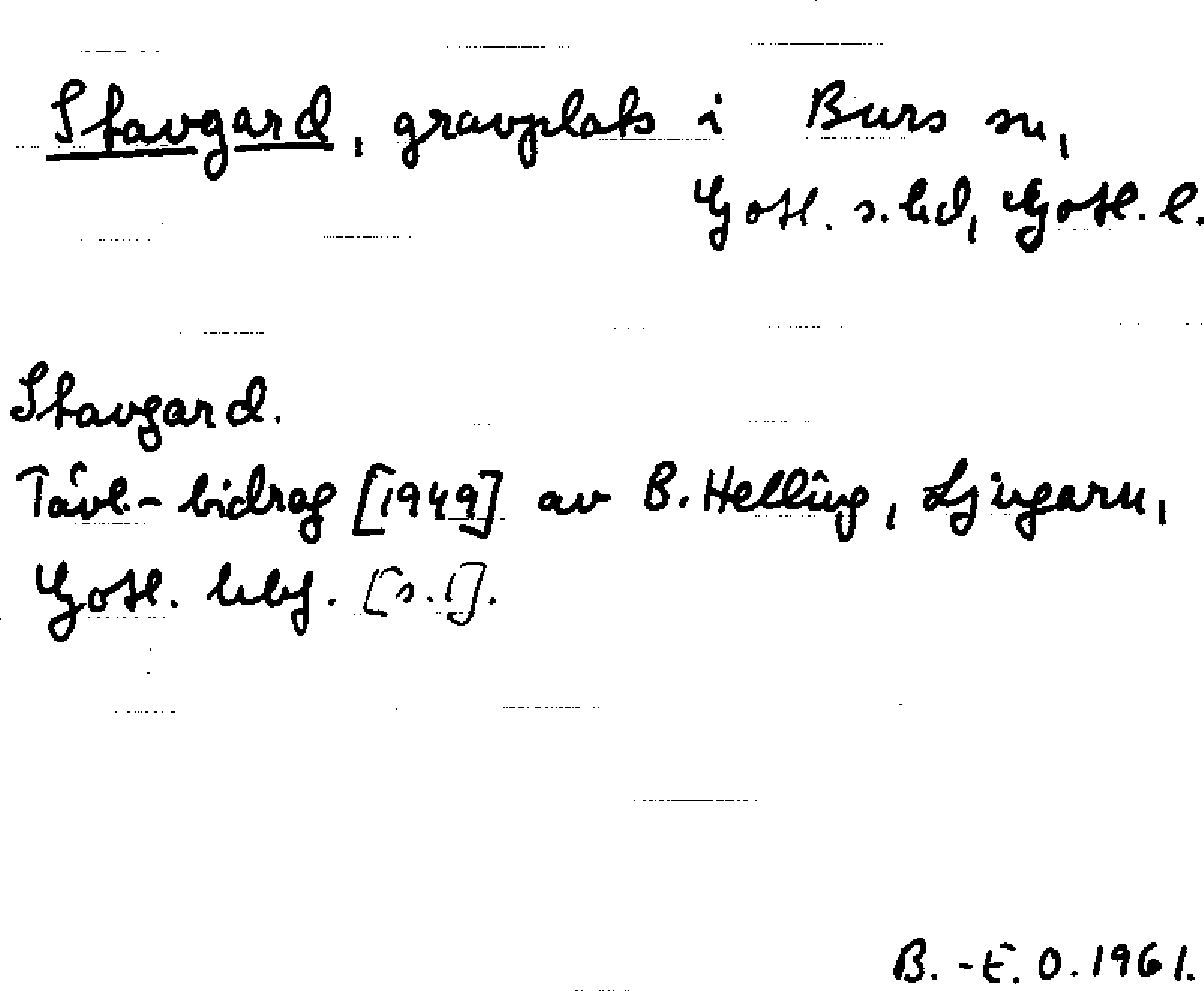 Stavgard, gravplats i Burs sn,
Gotl. s. hd, Gotl. l.
Stavgard.
Tävl.-bidrag [1949] av B. Helling, Ljugarn,
Gotl. hbf. [s.l].
B.-E. O. 1961.